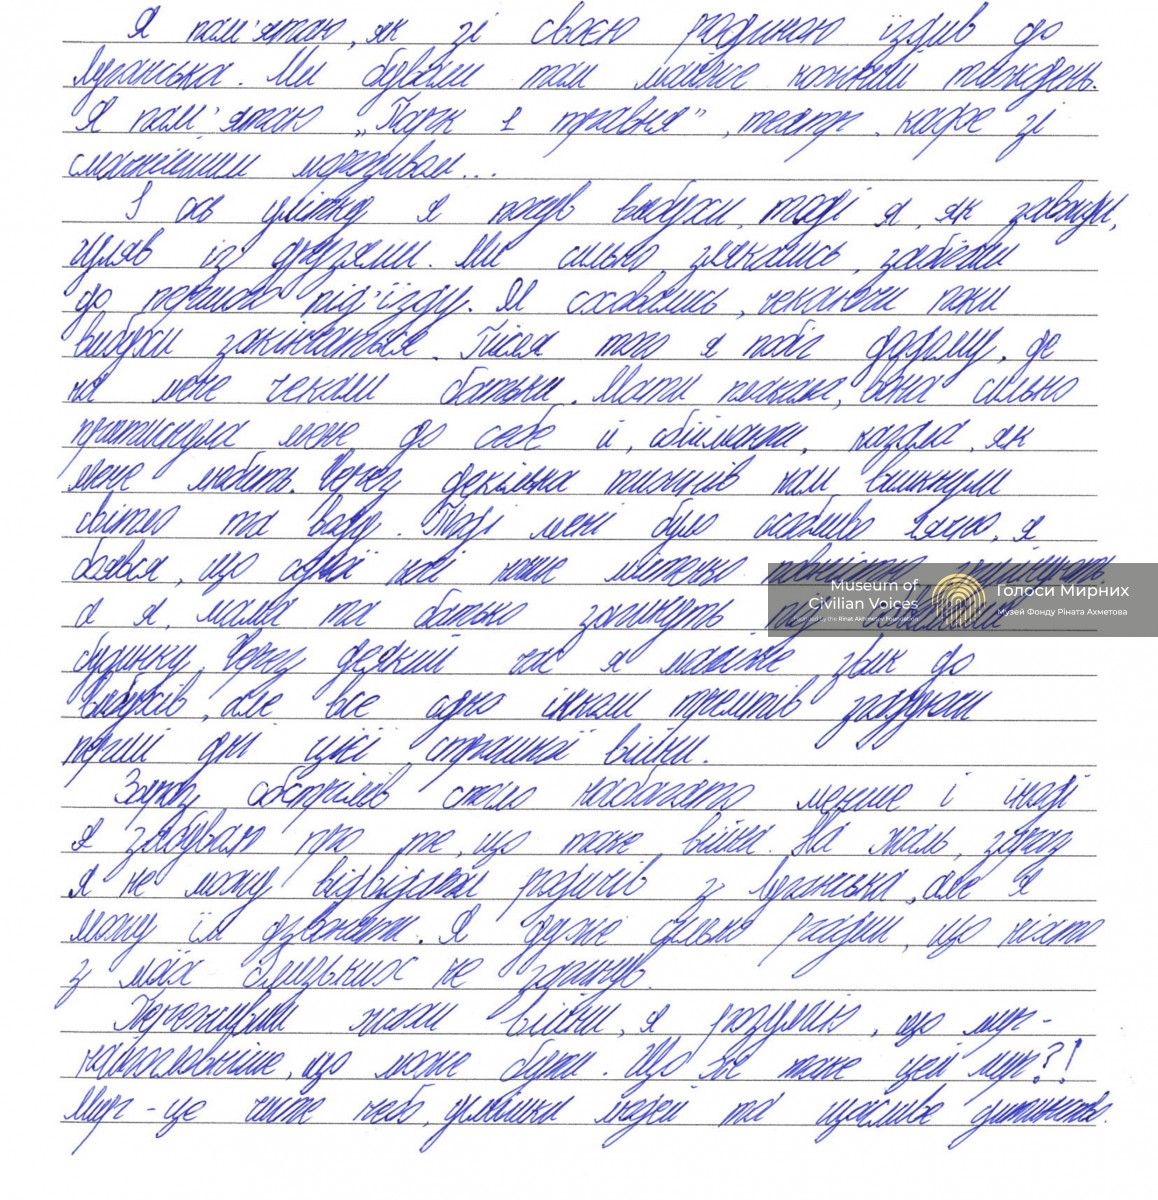 Я пам'ятаю, як зі своєю родиною їздив до
Луганська. Ми бували там майже кожний тиждень.
Я пам'ятаю „Парк 1 травня", театр, кафе зі
смачнішим морозивом...
І ось улітку я почув вибухи, тоді я, як завжди,
гуляв із друзями. Ми сильно злякались, забігли
до першого під'їзду. Ми сховались, чекаючи поки
вибухи закінчаться. Після того я побіг додому, де
на мене чекали батьки. Мати плакала, вона сильно
притиснула мене до себе й, обіймаючи, казала, як
мене любить. Через декілька тижнів нам вимкнули
світло та воду. Тоді мені було особливо лячно, я
боявся, що одної ночі наше містечко повністю
а я, мама та батько загинуть під уламками
будинку. Через деякий час я майже звик до
вибухів, але все одно інколи тремтів, згадуючи
перші дні цієї страшної війни.
Зараз обстрілів стало набагато менше і іноді
я забуваю про те, що таке війна. На жаль, зараз
я не можу відвідати родичів з Луганська, але я
можу їм дзвонити. Я дуже сильно радий, що ніхто
з моїх близьких не загинув.
Переживши жахи війни, я розумію, що мир -
найголовніше, що може бути. Що ж таке цей мир?!
Мир - це чисте небо, усмішки людей та щасливе дитинство.
Museum of
Civilian Voices
Founded by the Rinat Akhmetov Foundation
Голоси Мирних
Музей Фонду Ріната Ахметова